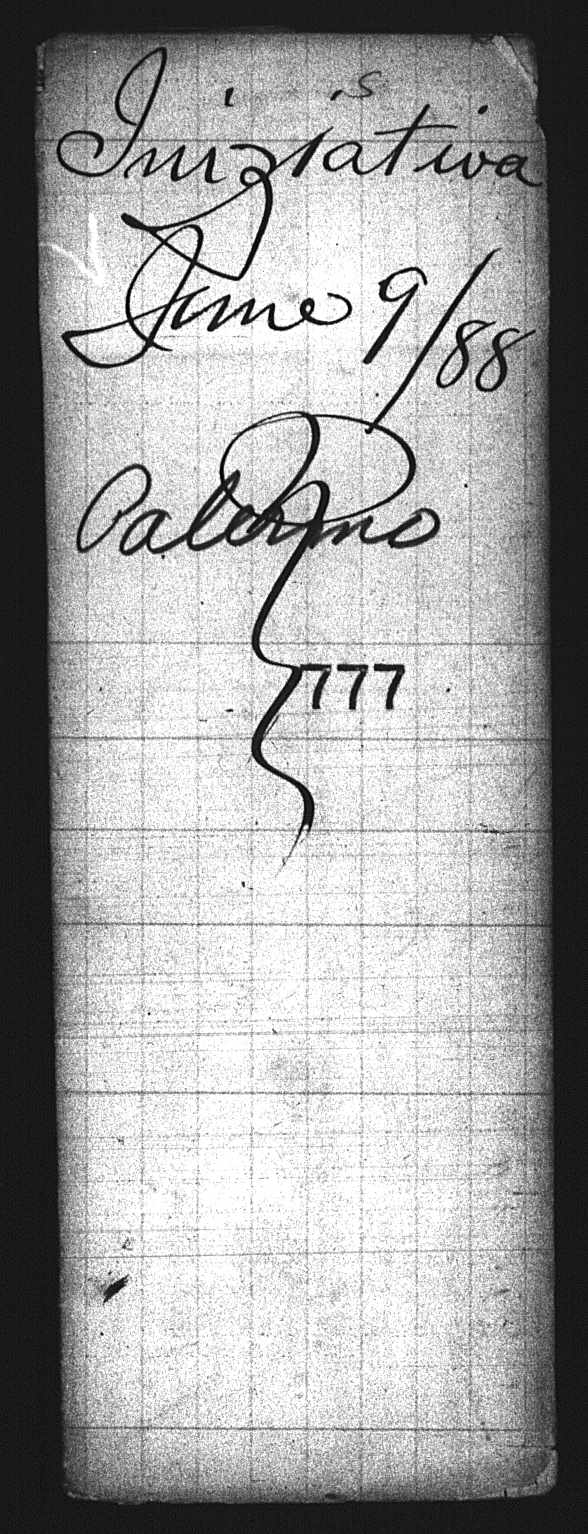 Iniziativa
June 9/88
Palermo
777